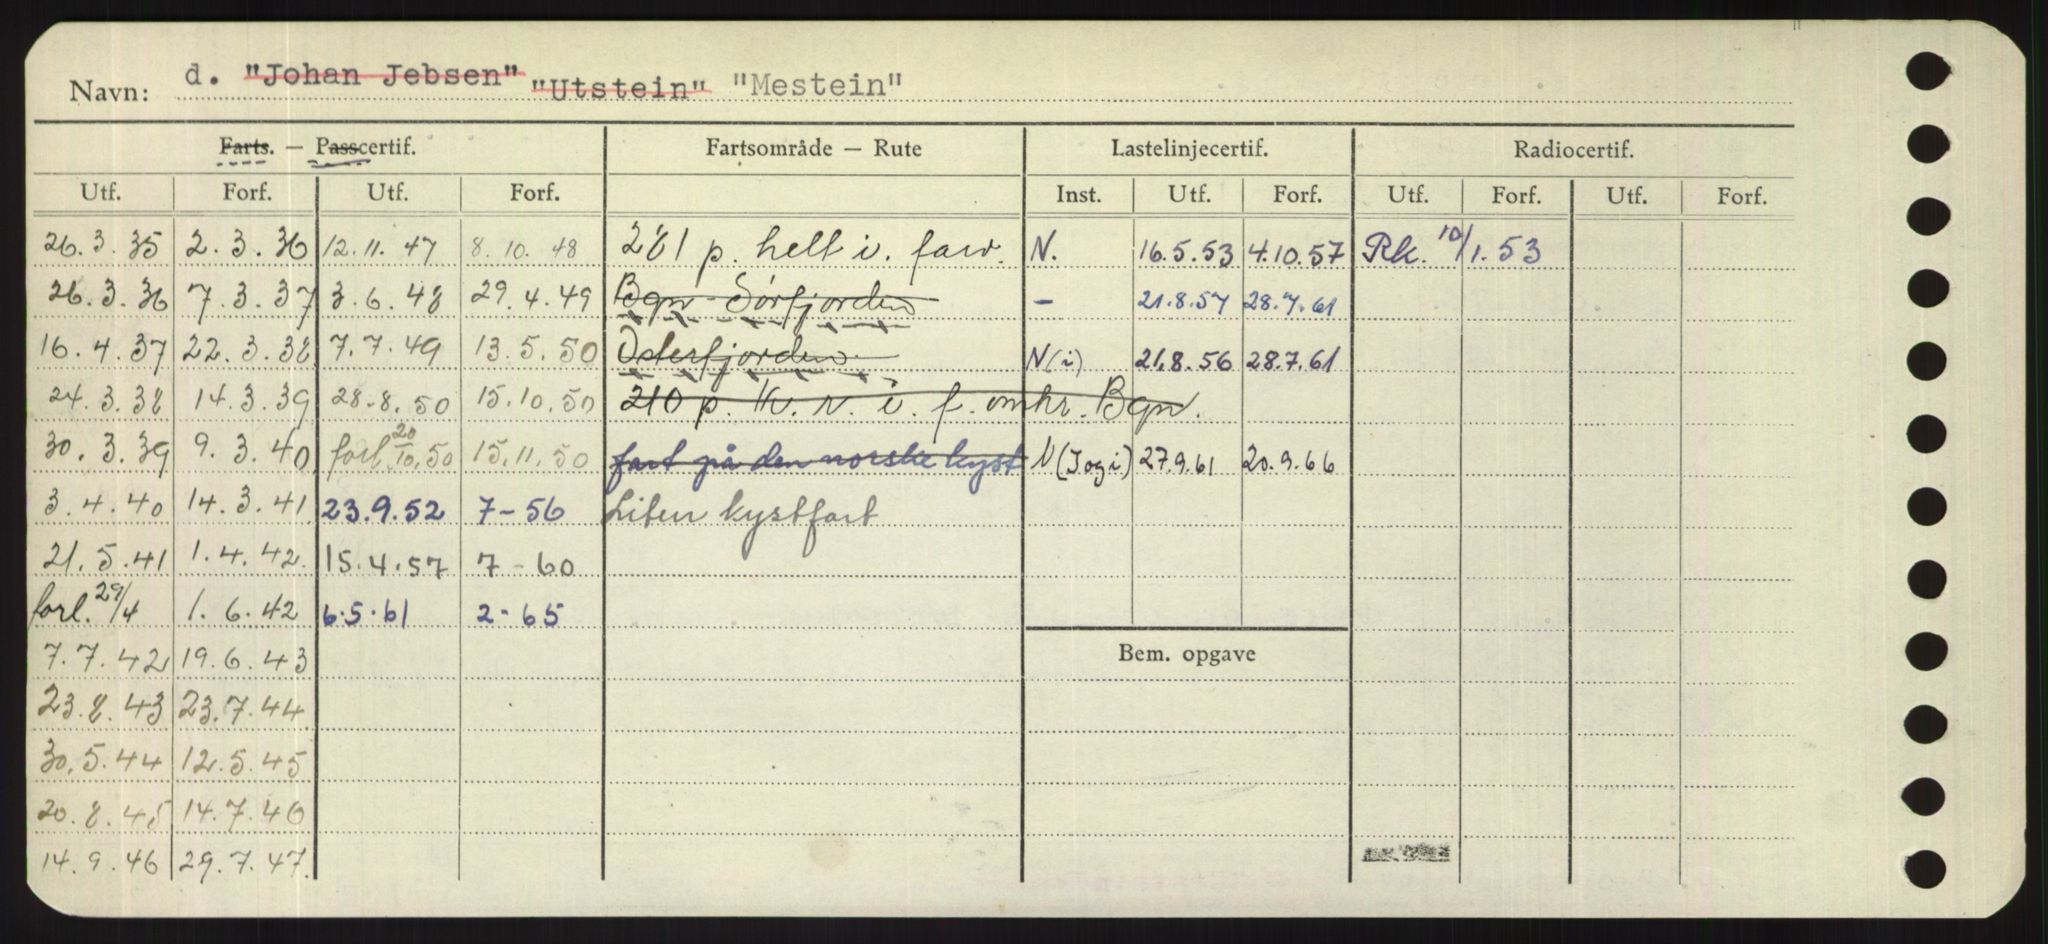 Navn: d. "Johan Jebsen" "Utstein" "Mestein"
Farts. — Passcertif. Fartsområde — Rute Lastelinjecertif. Radiocertif.
Utf. Forf. Utf. Forf. Inst. Utf. Forf. Utf. Forf. Utf. Forf.
26.3.35 2.3.36 12.11.47 8.10.48 281 p. helt i. farv. N. 16.5.53 4.10.57 Rk. 10/1.53
26.3.36 7.3.37 3.6.48 29.4.49 Bgn - Sørfjorden — 21.8.57 28.7.61
16.4.37 22.3.38 7.7.49 13.5.50 Osterfjorden N(i) 21.8.56 28.7.61
24.3.38 14.3.39 28.8.50 15.10.50 210 p. i. f. omkr. Bgn.
30.3.39 9.3.40 forl. 20/10.50 15.11.50 fart på den norske kyst N(I og i) 27.9.61 20.9.66
3.4.40 14.3.41 23.9.52 7-56 Liten kystfart
21.5.41 1.4.42. 15.4.57 7-60
forl. 29/4 1.6.42 6.5.61 2-65
Bem. opgave
7.7.42 19.6.43
23.8.43 23.7.44
30.5.44 12.5.45
20.8.45 14.7.46
14.9.46 29.7.47.